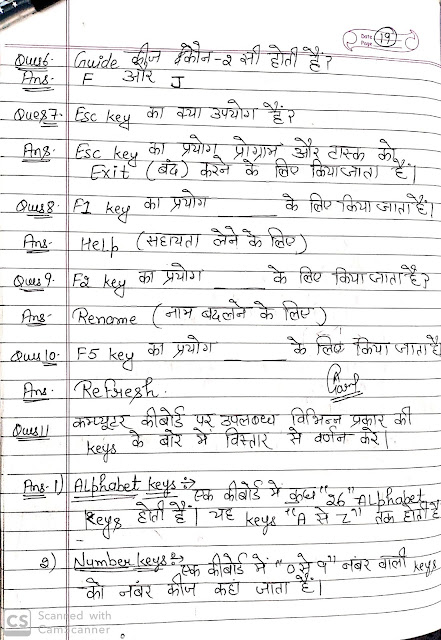 Date
Page 19
Ques6. Guide कीज कौन-२ सी होती हैं?
Ans. F और J
Ques7. Esc key का क्या उपयोग है?
Ans. Esc key का प्रयोग प्रोग्राम और टास्क को
Exit (बंद) करने के लिए किया जाता है।
Ques8. F1 key का प्रयोग ______ के लिए किया जाता है।
Ans. Help (सहायता लेने के लिए)
Ques9. F2 key का प्रयोग ______ के लिए किया जाता है?
Ans. Rename (नाम बदलने के लिए)
Ques10. F5 key का प्रयोग ______ के लिए किया जाता है
Ans. Refresh.
Ques11 कम्प्यूटर कीबोर्ड पर उपलब्ध विभिन्न प्रकार की
keys के बारे में विस्तार से वर्णन करे।
Ans- 1) Alphabet keys :→ एक कीबोर्ड में कुल "26" Alphabet
keys होती है। यह keys "A से Z" तक होती है
2) Number keys :→ एक कीबोर्ड में "0 से 9" नंबर वाली keys
को नंबर कीज कहा जाता है।
CS Scanned with
CamScanner